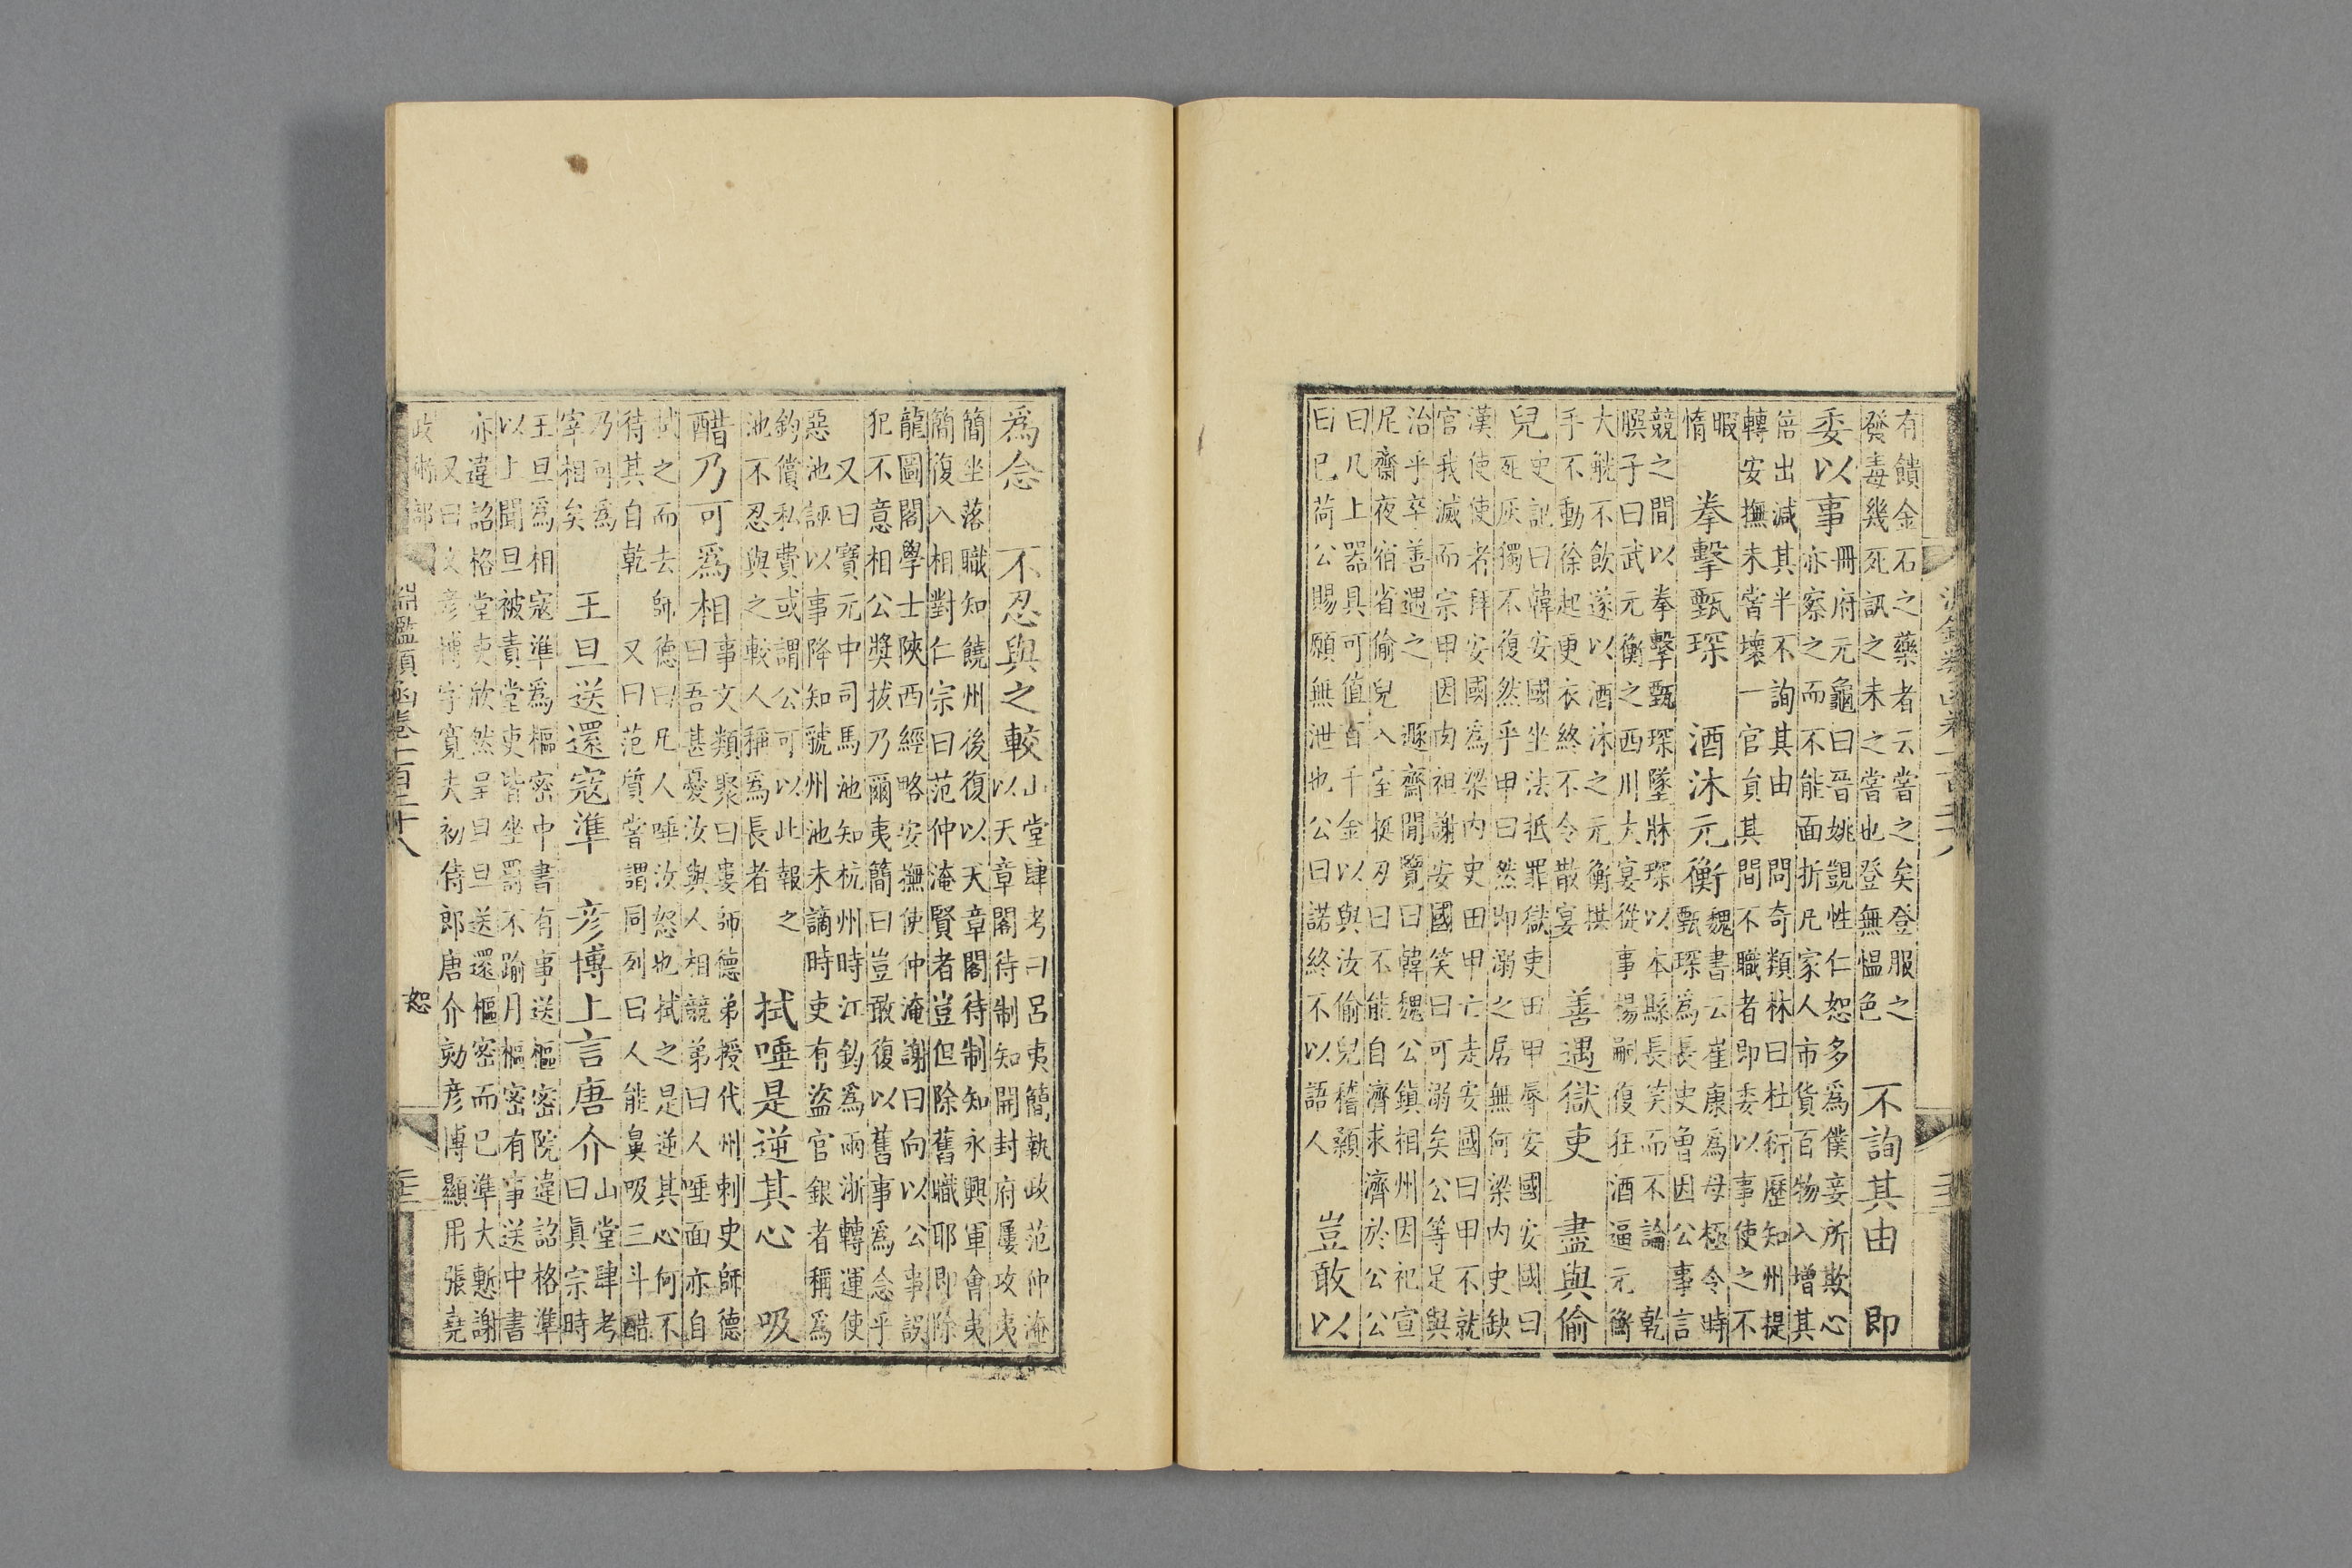 有饋金石之藥者云嘗之矣登服之
發毒幾死訊之未之嘗也登無慍色
不詢其由 即
委以事
冊府元龜曰晉姚覬性仁恕多為僕妾所欺心
亦察之而不能面折凡家人市貨百物入增其
倍出減其半不詢其由 問奇類林曰杜衍歷知州提
轉安撫未嘗壞一官負其間不職者即委以事使之不
暇
惰
拳擊甄琛 酒沐元衡
魏書云崔康為母極令時
甄琛為長史魯因公事言
競之間以拳擊甄琛墜牀琛以本縣長笑而不論 乾
䐑子曰武元衡之西川大宴從事楊嗣復狂酒逼元衡
大觥不飲遂以酒沐之元衡拱
手不動徐起更衣終不令散宴
善遇獄吏 盡與偷
兒
史記曰韓安國坐法抵罪獄吏田甲辱安國安國曰
死灰獨不復然乎甲曰然即溺之居無何梁內史缺
漢使使者拜安國為梁內史田甲亡走安國曰甲不就
官我滅而宗甲因肉袒謝安國笑曰可溺矣公等足與
治乎卒善遇之 遯齋閒覽曰韓魏公鎮相州因祀宣
尼齋夜宿省偷兒入室挺刃曰不能自濟求濟於公公
曰几上器具可值百千金以與汝偷兒稽顙
曰已荷公賜願無泄也公曰諾終不以語人
豈敢以
為念 不忍與之較
山堂肆考曰呂夷簡執政范仲淹
以天章閣待制知開封府屢攻夷
簡坐落職知饒州後復以天章閣待制知永興軍會夷
簡復入相對仁宗曰范仲淹賢者豈但除舊職耶即除
龍圖閣學士陝西經略安撫使仲淹謝曰向以公事誤
犯不意相公獎拔乃爾夷簡曰豈敢復以舊事為念乎
又曰寶元中司馬池知杭州時江鈞為兩浙轉運使
惡池誣以事降知虢州池未謫時吏有盜官銀者稱為
鈞償私費或謂公可以此報之
池不忍與之較人稱為長者
拭唾是逆其心 吸
醋乃可為相
事文類聚曰婁師德弟授代州刺史師德
曰吾甚憂汝與人相競弟曰人唾面亦自
拭之而去師德曰凡人唾汝怒也拭之是逆其心何不
待其自乾 又曰范質嘗謂同列曰人能鼻吸三斗醋
乃可為
宰相矣
王旦送還寇準 彥博上言唐介
山堂肆考
曰真宗時
王旦為相寇準為樞密中書有事送樞密院違詔格準
以上聞旦被責堂吏皆坐罰不踰月樞密有事送中書
亦違詔格堂吏欣然呈旦旦送還樞密而已準大慙謝
又曰文彥博字寬夫初侍郎唐介劾彥博顯用張堯
政術部
淵鑑類函卷
恕